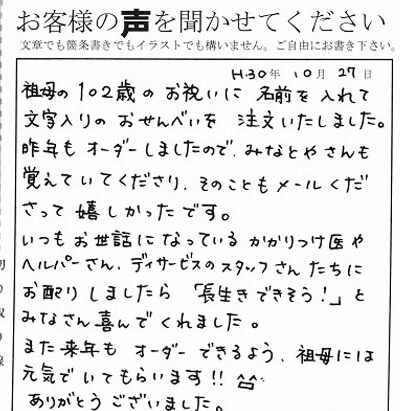 お客様の声を聞かせてください
文章でも箇条書きでもイラストでも構いません。ご自由にお書き下さい。
H.30年 10月 27日
祖母の102歳のお祝いに名前を入れて
文字入りのおせんべいを注文いたしました。
昨年もオーダーしましたので、みなとやさんも
覚えていてくださり、そのこともメールくだ
さって嬉しかったです。
いつもお世話になっているかかりつけ医や
ヘルパーさん、デイサービスのスタッフさんたちに
お配りしましたら「長生きできそう!」と
みなさん喜んでくれました。
また来年もオーダーできるよう、祖母には
元気でいてもらいます!! ^^
ありがとうございました。
り
取
り
線